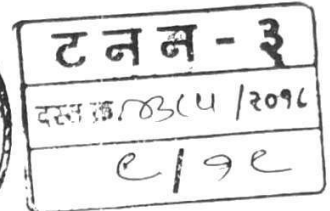 ट न न - ३
दस्त क्र. /२०१८
९ / १९